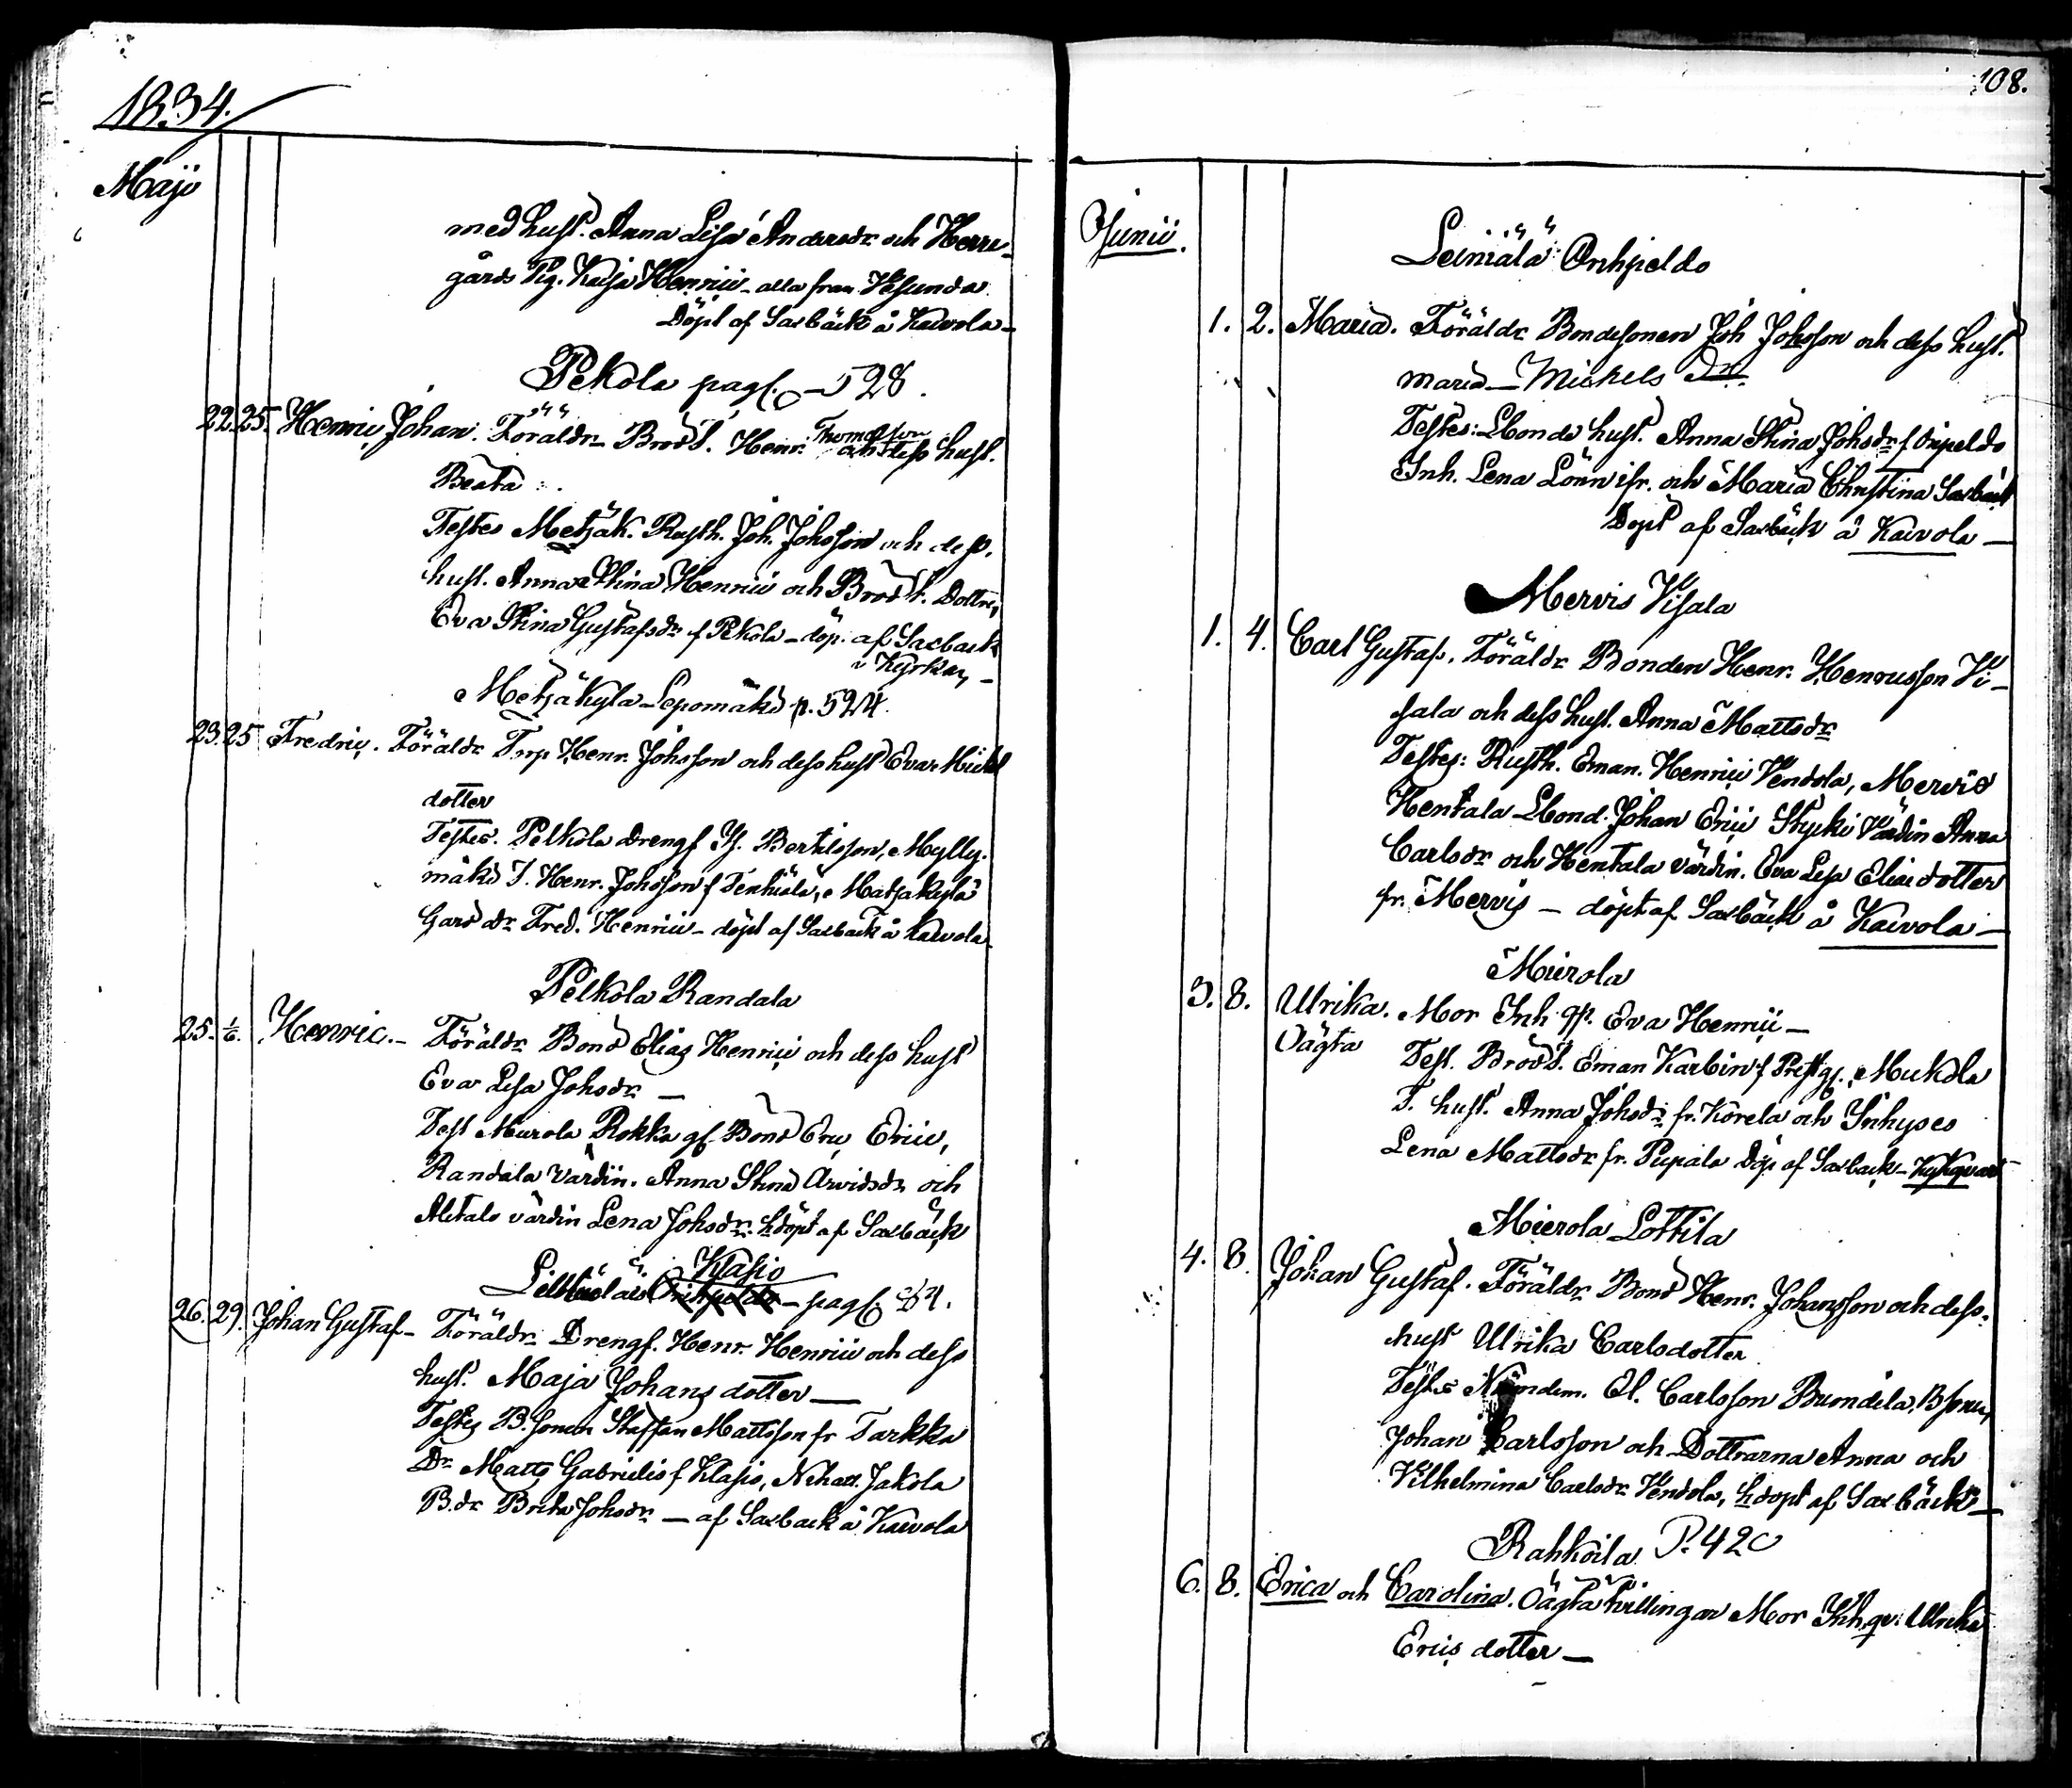 1834.
Maji
med hust. Anna Lisa Andersdr och Herre-
gårds Pig. Kaisa Henrici - alla fran Vesunda
Döpt af Saxbäck å Kaivola -
Pekola pag. 528.
22. 25. Henric Johan. Föräldr. Brods. Henr. Thomasson och dess hust.
Beata
Testes Metjäk. Rusth. Joh. Johsson och dess
hust. Anna Stina Henrici och Brods. Dottr.
Eva Stina Gustafsdr f Pekola - döp. af Saxback
i Kyrkan -
Metjäkyla Lepomäki p. 524.
23. 25 Fredric. Föräldr Torp Henr. Johsson och dess hust Eva Mickel
dotter
Testes. Pelkola drengs H. Bertilsson, Mylly-
mäki T. Henr. Johsson f Tenhiälä, Matjakylä
Gard dr Fred. Henrici - döpt af Saxback å Kaivola
Pelkola Randala
25. 1/6. Henric. - Föräldr Bond Elias Henrici och dess hust
Eva Lisa Johsdr -
Test Murola Rokka gf. Bond Eric Erici,
Randala värdin. Anna Stina Arvidsdr och
Alitalo värdin Lena Johsdr. hdöpt af Saxbäck
Klasio
pag. 54.
26. 29. Johan Gustaf - Föräldr. Drengs. Henr. Henrici och dess
hust. Maja Johans dotter -
Testes B. sonen Staffan Mattsson fr Tarkka
Dr Matts Gabrielis f Klasio, Nihatt. Jakola
B. dr Brita Johsdr - af Saxback å Kaivola
108.
Junii.
Leiniälä Orihpeldo
1. 2. Maria. Föräldr Bondesonen Joh Johsson och dess hust.
Maria - Mickels Dr.
Testes: Lbonde hust. Anna Stina Johsdr f Oripeldo
Inh. Lena Lönn ifr. och Maria Christina Saxbäck
Döpt af Saxbäck å Kaivola -
Mervis Visala
1. 4. Carl Gustaf. Föräldr Bonden Henr. Henricsson Vi-
sala och dess hust. Anna Mattsdr
Testes: Rusth. Eman. Henrici Vendola, Mervis
Hentala Lbond. Johan Erici Stycki Värdin Anna
Carlsdr och Hentala värdin. Eva Lisa Eliae dotter
fr. Mervis - döpt af Saxbäck å Kaivola -
Mierola
3. 8. Ulrika. Mor Inh qp. Eva Henrici -
Oägta
Test. Brods. Eman Karlin f Prestg. Mukola
T. hust. Anna Johsdr fr. Korela och Inhyses
Lena Mattsdr fr. Pupala Döp af Saxback -
Mierola Lottila
4. 8. Johan Gustaf. Föräldr Bond Henr. Johansson och dess
hust Ulrika Carlsdotter
Testes Nämdem. Ol. Carlsson Buondila, Bsonen,
Johan Carlsson och Dottrarna Anna och
Vilhelmina Carlsdr Vendola, hdöpt af Saxbäck -
Rahkoila P. 420
6. 8. Erica och Carolina. Oägta tvillingar Mor Inh. qv: Ulrika
Erics dotter -